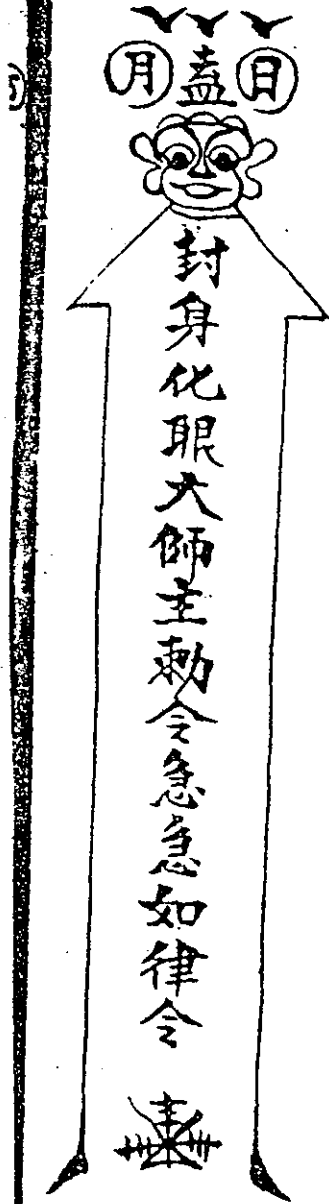 日盖月
封身化眼大師主勅令急急如律令